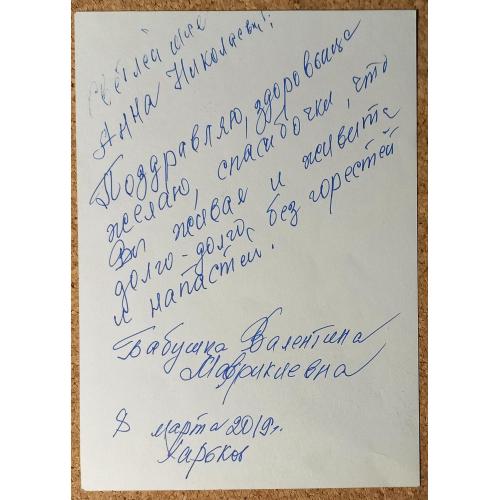 Светлейшие
Анна Николаевна!
Поздравляю, здоровьица
желаю, спасибочки, что
Вы живая и живита
долго-долго, без горестей
и напастей.
Бабушка Валентина
Маврикиевна
8 марта 2019г.
Харьков